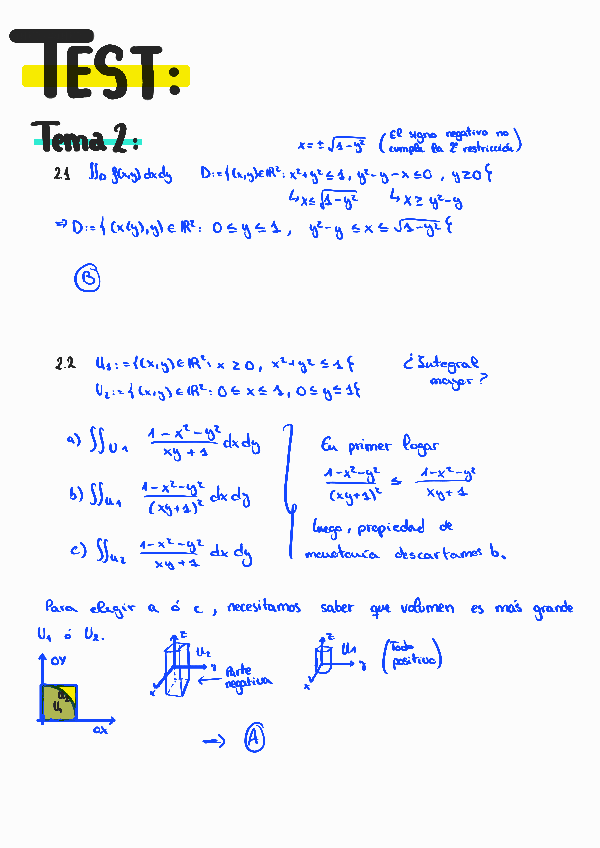 TEST:
Tema 2:
x = ± √1-y² (El signo negativo no cumple la 2ª restricción)
2.1 ∬_D f(x,y) dx dy D:={(x,y) ∈ ℝ²: x²+y² ≤ 1, y²-y-x ≤ 0, y ≥ 0}
↳ x ≤ √1-y² ↳ x ≥ y²-y
⇒ D:={(x(y),y) ∈ ℝ²: 0 ≤ y ≤ 1, y²-y ≤ x ≤ √1-y²}
B
2.2 U₁:={(x,y) ∈ ℝ²: x ≥ 0, x²+y² ≤ 1} ¿Integral mayor?
U₂:={(x,y) ∈ ℝ²: 0 ≤ x ≤ 1, 0 ≤ y ≤ 1}
a) ∬_U1 (1-x²-y²)/(xy+1) dx dy
b) ∬_U1 (1-x²-y²)/(xy+1)² dx dy
c) ∬_U2 (1-x²-y²)/(xy+1) dx dy
En primer lugar
(1-x²-y²)/(xy+1)² ≤ (1-x²-y²)/(xy+1)
luego, propiedad de
monotonía descartamos b.
Para elegir a ó c, necesitamos saber que volumen es más grande
U₁ ó U₂.
OY
U₁
OX
z
U₂
y
x
Parte negativa
z
U₁
y
x
(Todo positivo)
→ A